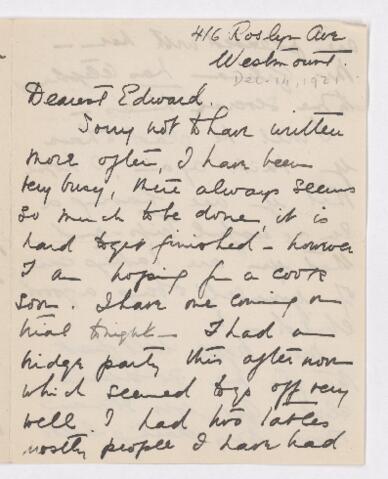 416 Roslyn Ave
Westmount.
Dec. 14, 1921
Dearest Edward.
Sorry not to have written
more often, I have been
very busy, there always seems
so much to be done, it is
hard to get finished - however
I am hoping for a cook
soon. I have one coming on
trial tonight - I had a
bridge party this afternoon
which seemed to go off very
well. I had two tables
mostly people I have had